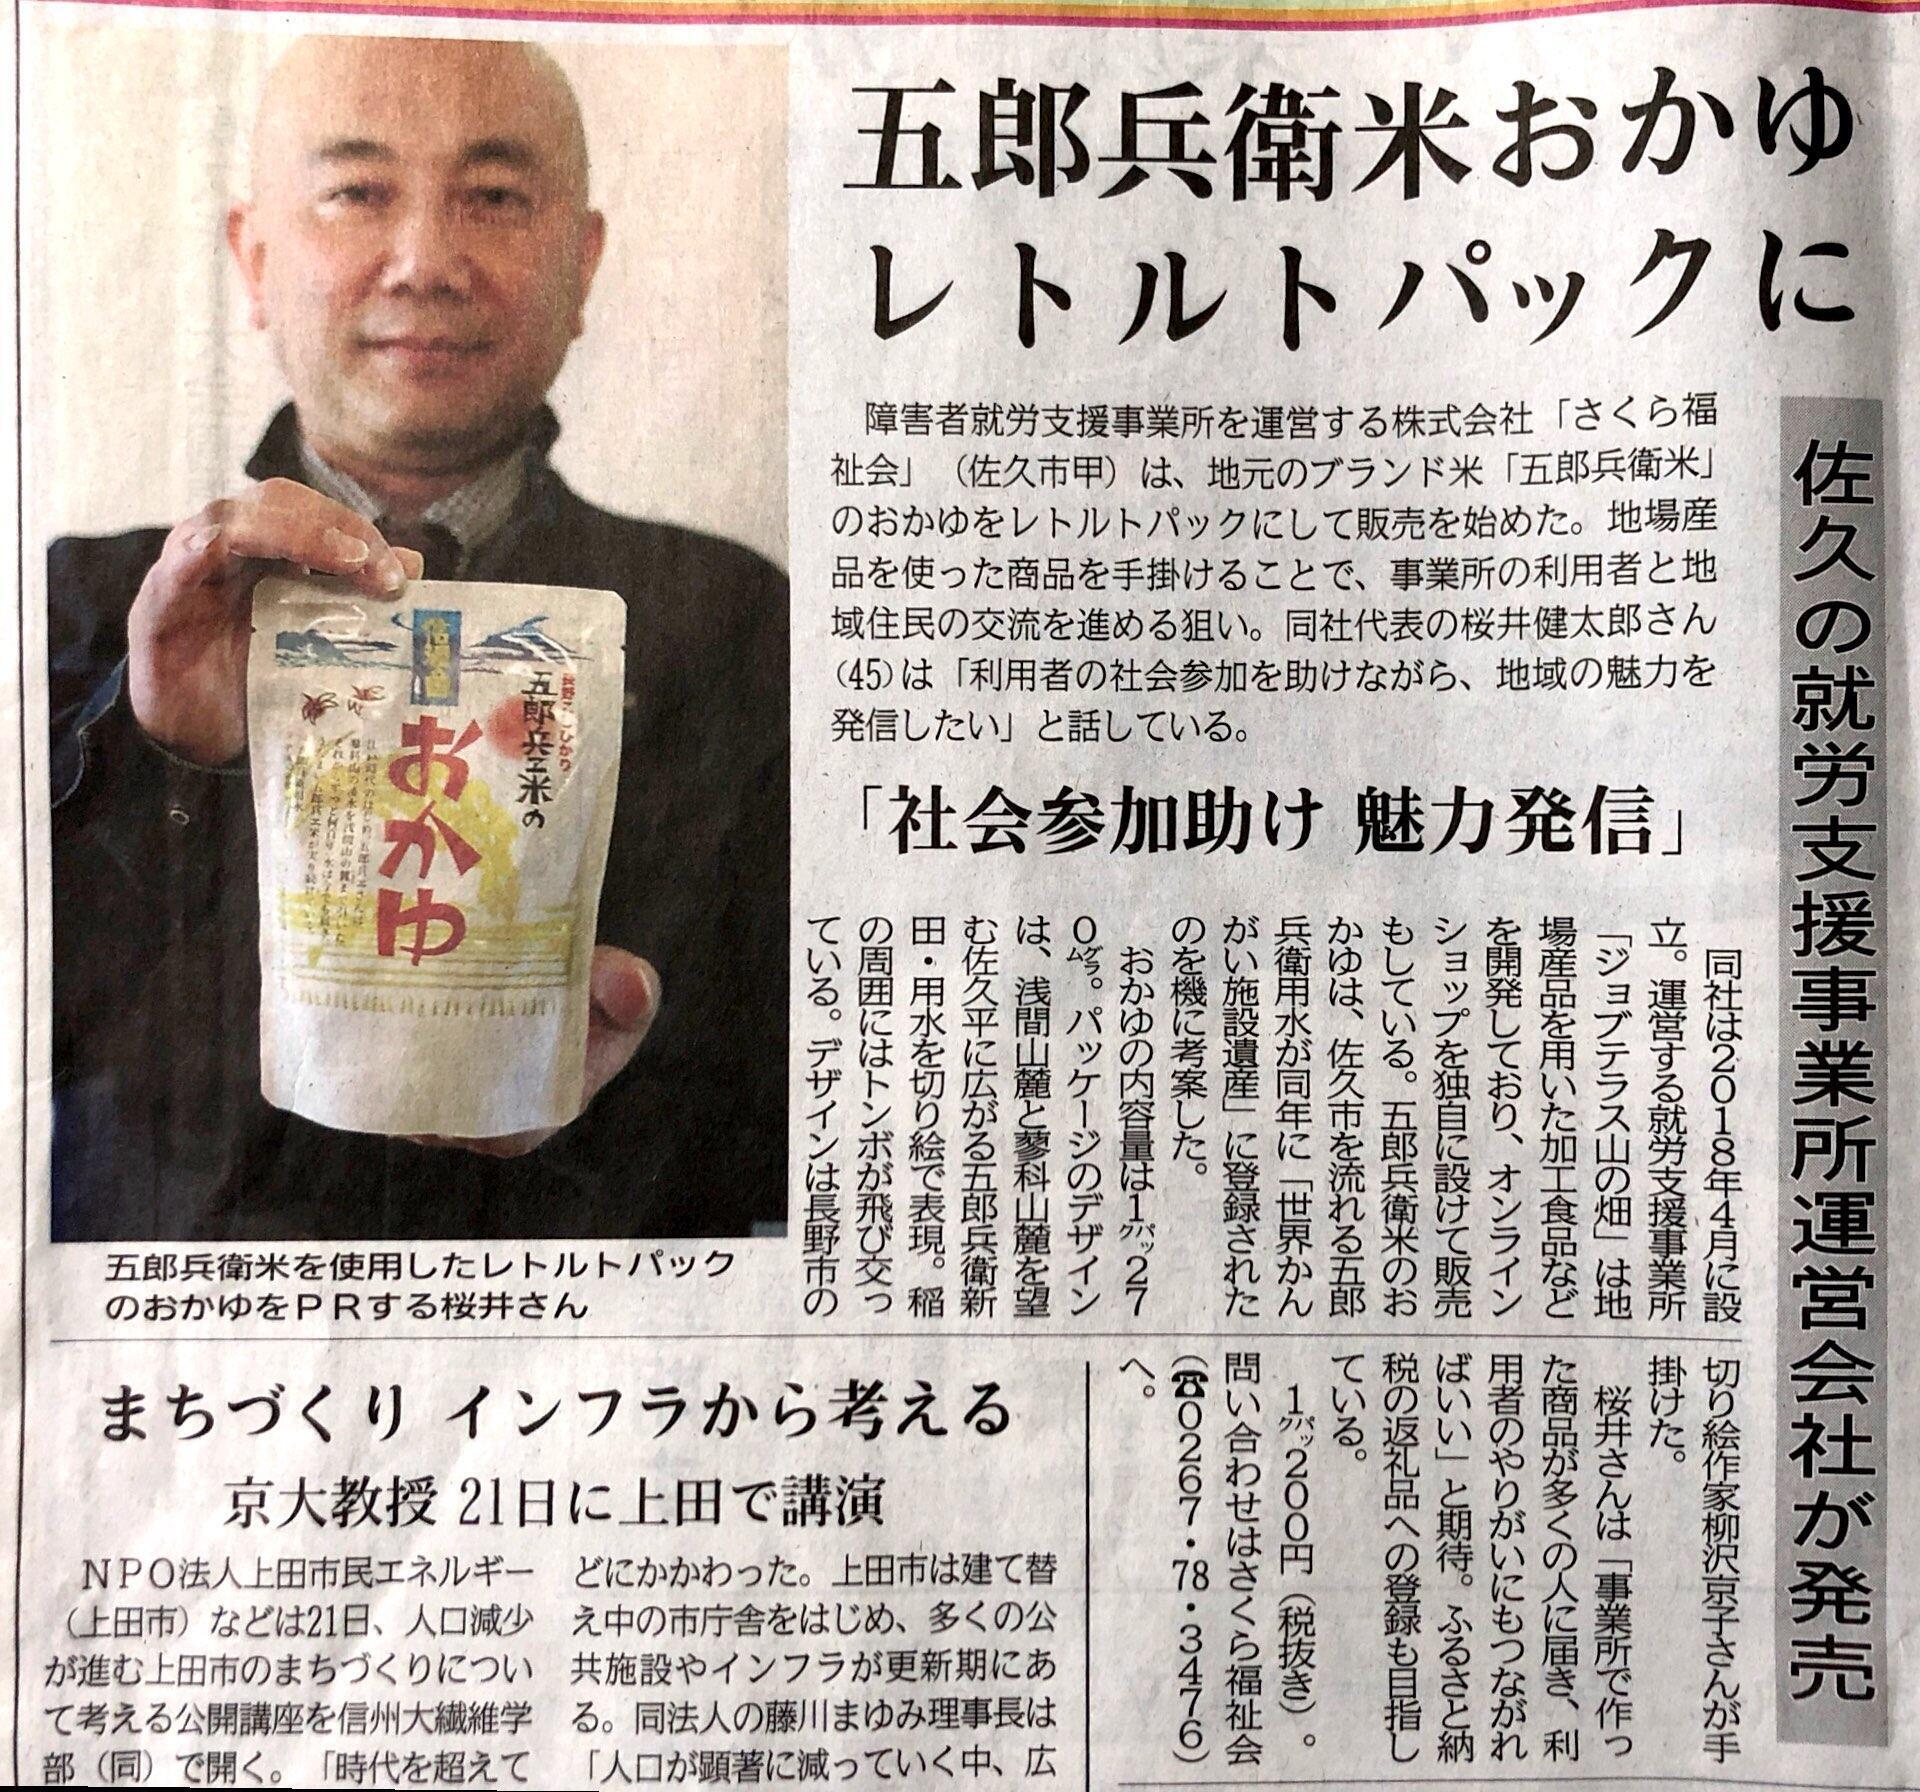 五郎兵衛米おかゆ
レトルトパックに
佐久の就労支援事業所運営会社が発売
障害者就労支援事業所を運営する株式会社「さくら福
祉会」（佐久市甲）は、地元のブランド米「五郎兵衛米」
のおかゆをレトルトパックにして販売を始めた。地場産
品を使った商品を手掛けることで、事業所の利用者と地
域住民の交流を進める狙い。同社代表の桜井健太郎さん
(45)は「利用者の社会参加を助けながら、地域の魅力を
発信したい」と話している。
「社会参加助け 魅力発信」
同社は2018年4月に設
立。運営する就労支援事業所
「ジョブテラス山の畑」は地
場産品を用いた加工食品など
を開発しており、オンライン
ショップを独自に設けて販売
もしている。五郎兵衛米のお
かゆは、佐久市を流れる五郎
兵衛用水が同年に「世界かん
がい施設遺産」に登録された
のを機に考案した。
おかゆの内容量は1パック27
0グラム。パッケージのデザイン
は、浅間山麓と蓼科山麓を望
む佐久平に広がる五郎兵衛新
田・用水を切り絵で表現。稲
の周囲にはトンボが飛び交っ
ている。デザインは長野市の
切り絵作家柳沢京子さんが手
掛けた。
桜井さんは「事業所で作っ
た商品が多くの人に届き、利
用者のやりがいにもつながれ
ばいい」と期待。ふるさと納
税の返礼品への登録も目指し
ている。
1パック200円（税抜き）。
問い合わせはさくら福祉会
（☎0267・78・3476）
へ。
五郎兵エ米の
おかゆ
五郎兵衛米を使用したレトルトパック
のおかゆをPRする桜井さん
まちづくり インフラから考える
京大教授 21日に上田で講演
NPO法人上田市民エネルギー
（上田市）などは21日、人口減少
が進む上田市のまちづくりについ
て考える公開講座を信州大繊維学
部（同）で開く。「時代を超えて
どにかかわった。上田市は建て替
え中の市庁舎をはじめ、多くの公
共施設やインフラが更新期にあ
る。同法人の藤川まゆみ理事長は
「人口が顕著に減っていく中、広